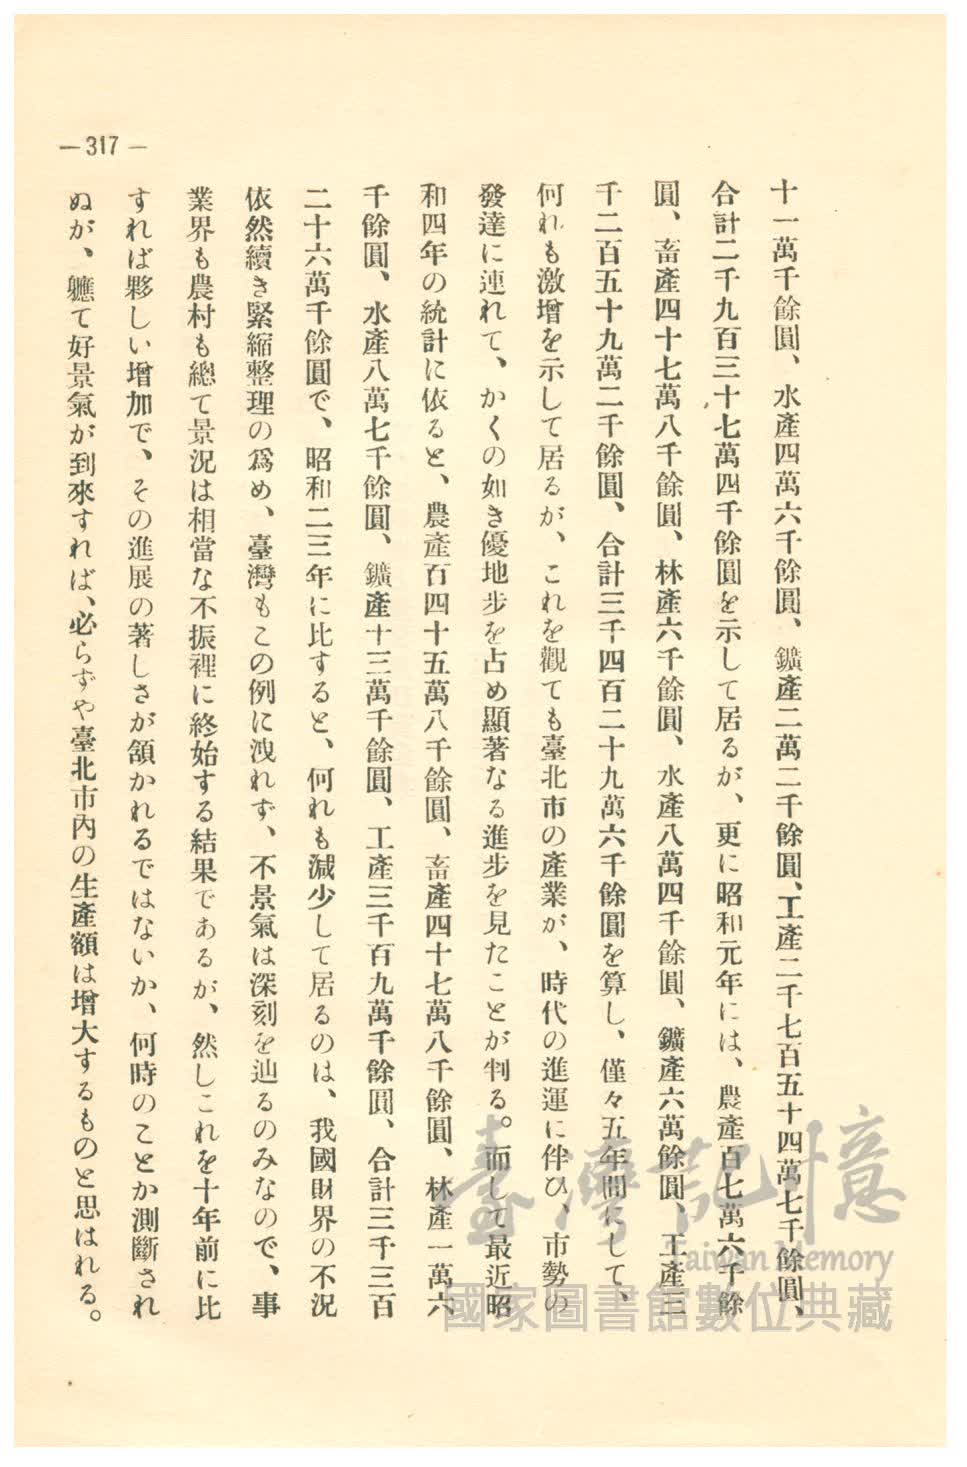 —317—
十一萬千餘圓、水產四萬六千餘圓、鑛產二萬二千餘圓、工產二千七百五十四萬七千餘圓、
合計二千九百三十七萬四千餘圓を示して居るが、更に昭和元年には、農產百七萬六千餘
圓、畜產四十七萬八千餘圓、林產六千餘圓、水產八萬四千餘圓、鑛產六萬餘圓、工產三
千二百五十九萬二千餘圓、合計三千四百二十九萬六千餘圓を算し、僅々五年間にして、
何れも激增を示して居るが、これを觀ても臺北市の產業が、時代の進運に伴ひ、市勢の
發達に連れて、かくの如き優地步を占め顯著なる進步を見たことが判る。而して最近昭
和四年の統計に依ると、農產百四十五萬八千餘圓、畜產四十七萬八千餘圓、林產一萬六
千餘圓、水產八萬七千餘圓、鑛產十三萬千餘圓、工產三千百九萬千餘圓、合計三千三百
二十六萬千餘圓で、昭和二三年に比すると、何れも減少して居るのは、我國財界の不況
依然續き緊縮整理の爲め、臺灣もこの例に洩れず、不景氣は深刻を辿るのみなので、事
業界も農村も總て景況は相當な不振裡に終始する結果であるが、然しこれを十年前に比
すれば夥しい增加で、その進展の著しさが頷かれるではないか、何時のことか測斷され
ぬが、軈て好景氣が到來すれば、必らずや臺北市內の生產額は增大するものと思はれる。
臺灣記憶
Taiwan Memory
國家圖書館數位典藏